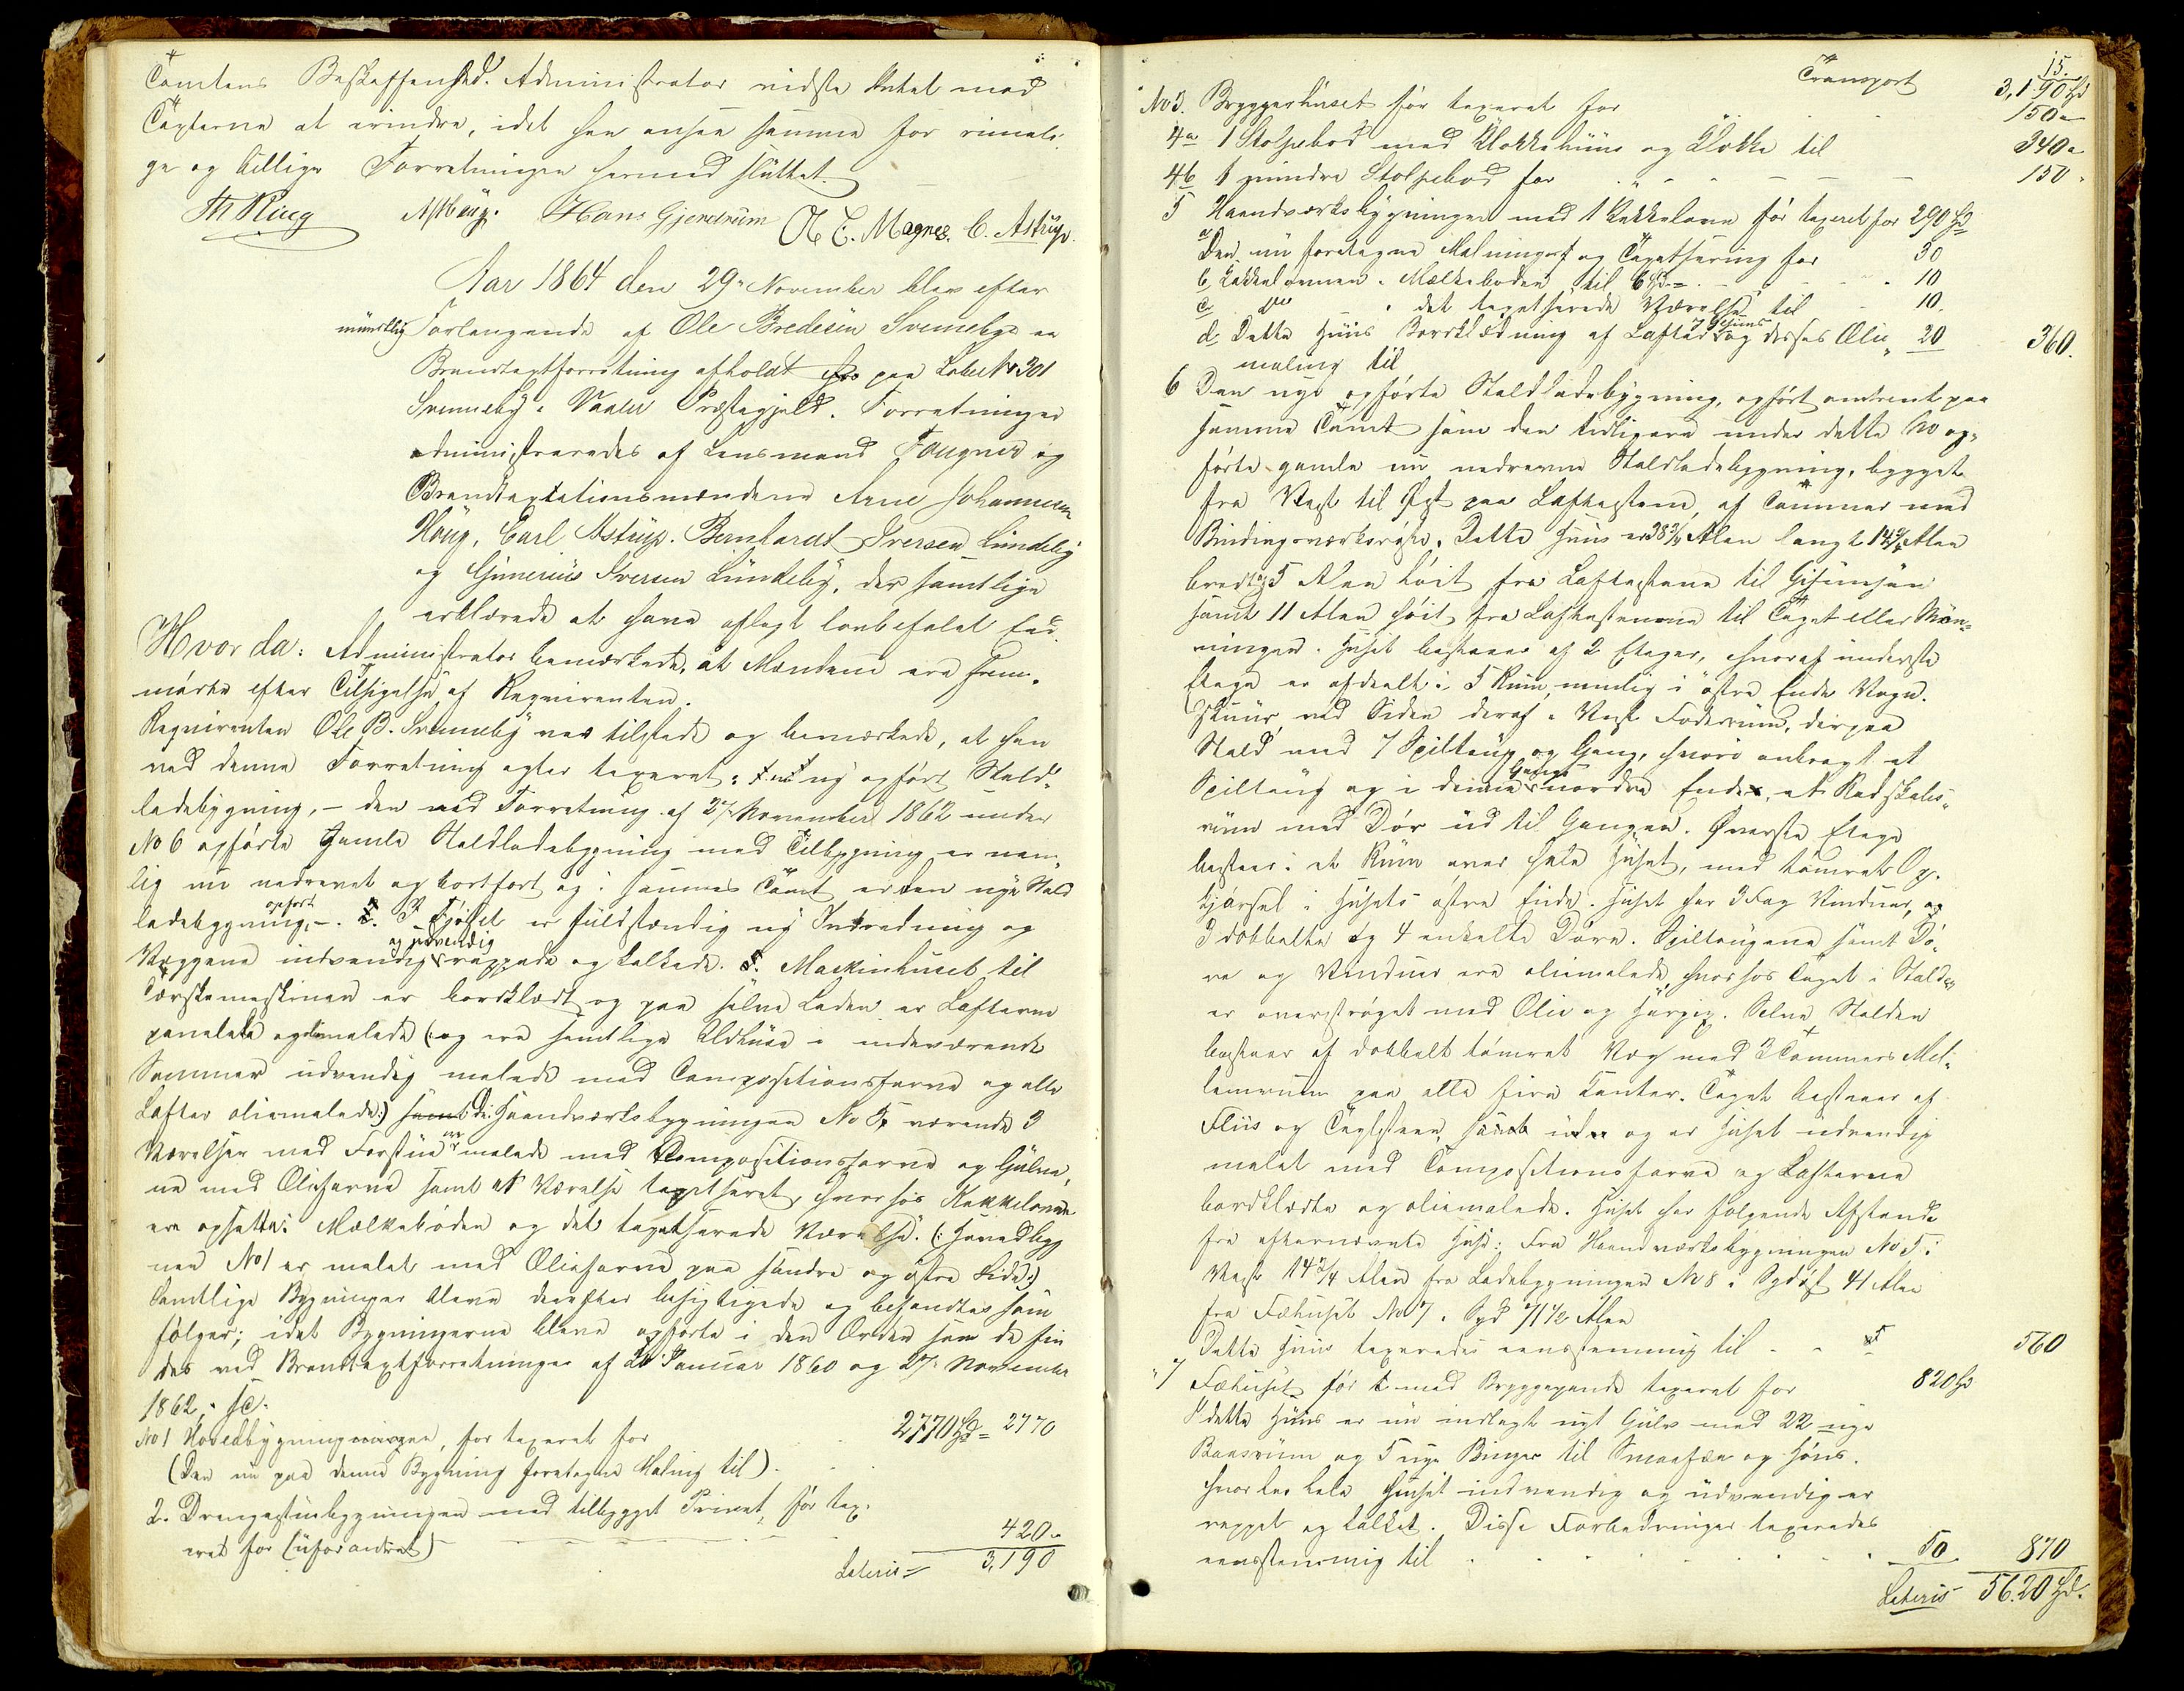 Tomtens Beskaffenhed. Administrator vidste Intet mod
Taxterne at erindre, idet han ansaa samme for rimeli-
ge og billige Forretningen hermed sluttet.
Th Ring Hans Gjerdrum Ole C. Magnes. C. Astrup.
Aar 1864 den 29 November blev efter
mundtlig Forlangende af Ole Bredesen Svenneby en
Brandtaxtforretning afholdt paa Løbe No 301
Svenneby i Vaaler Præstegjeld. Forretningen
administreredes af Lensmand Fougner og
Brandtaxtationsmændene Arne Johannesen
Houg, Carl Astrup, Bernhardt Iversen Lundeby
og Gunerius Iversen Lundeby, der samtlige
erklærede at have aflagt lovbefalet Eed.
Hvorda: Administrator bemærkede, at Mændene ere frem-
mødte efter Tilsigelse af Reqvirenten.
Reqvirenten Ole B. Svenneby var tilstede og bemærkede, at han
ved denne Forretning agter taxeret: ny opført Stald-
ladebygning, – den ved Forretning af 27 November 1862 under
No 6 opførte Gamle Staldladebygning med Tilbygning er nem-
lig nu nedrevet og bortført og i sammes Tomt er den nye Stald
ladebygning opført –. I Fjøset er fuldstændig ny Indredning og
Væggene indvendig og udvendig rappede og kalkede. Maskinhuset til
Tærskemaskinen er bordklædt og paa selve Laden er Lofterne
panelede og oliemalede (: og ere samtlige Udhuse i indeværende
Sommer udvendig malede med Compositionsfarve og alle
Lofter oliemalede:) I Haandværksbygningen No 5 værende 3
Værelser med Forstue er malede med Compositionsfarve og Gulve-
ne med Oliefarve samt et Værelse tapetseret, hvorhos Kakkelovne
ere opsatte i Mælkeboden og det tapetserede Værelse. (: Hovedbyg
nen No 1 er malet med Oliefarve paa søndre og østre Side:)
Samtlige Bygninger bleve derefter besigtigede og befandtes som
følger; idet Bygningerne bleve opførte i den Orden som de fin
des ved Brandtaxtforretninger af 20 Januar 1860 og 27 November
1862.
No 1 Hovedbygningen, før taxeret for 2770 Spd = 2770
(Den nu paa denne Bygning foretagne Maling til)
2. Drengestubygningen med tilbygget Privet, før tax-
eret for (uforandret) 420
Lateris = 3,190
15.
Transport 3,190 Spd
No 3. Bryggerhuset før taxeret for 150
4a 1 Stolpebod med Klokkehuus og Klokke til 340
4b 1 mindre Stolpebod for 150
5 Haandværksbygningen med 1 Kakkelovn før taxeret for 290 Spd
a Den nu foretagne Malning og Tapetsering for 30
b Kakkelovnen i Mælkeboden til 10
c Do i det tapetserede Værelse til 10
d Dette Huus Bordklædning af Lofter og dessen Olie 20 360.
maling til
6 Den nye opførte Staldladebygning, opført omtrent paa
samme Tomt som den tidligere under dette No op-
førte gamle nu nedrevne Staldladebygning, bygget
fra Vest til Øst paa Loftestene, af Tømmer med
Bindingsværksrøste. Dette Huus er 38 3/4 Alen langt 14 Alen
bredt og 5 Alen høit fra Loftestene til Gesimsen
samt 11 Alen høit fra Loftestenene til Taget eller Møn-
ningen. Huset bestaaer af 2 Etager, hvoraf underste
Etage er afdeelt i 5 Rum, nemlig i østre Ende Vogn-
skuur, ved Siden deraf i Vest Foderrum, derpaa
Stald med 7 Spiltoug og Gang, hvori anbragt et
Spiltoug og i denne Gangs nordre Ende, et Redskabs-
rum med Dør ud til Gangen. Øverste Etage
bestaar i et Rum over hele Huset, med tømret Op-
kjørsel i Husets østre Ende. Huset har 3 Fag Vinduer, og
3 dobbelte og 4 enkelte Døre. Spiltougene samt Dø-
re og Vinduer ere oliemalede, hvorhos Taget i Stalden
er overstrøget med Olie og Harpix. Selve Stalden
bestaaer af dobbelt tømret Væg med 3 Tommers Mel-
lemrum paa alle fire Kanter. Taget bestaaer af
Fliis og Taglsteen, og er Huset udvendig
malet med Compositionsfarve og Lofterne
bordklædte og oliemalede. Huset har følgende Afstande
fra efternævnte Huse: Fra Haandværksbygningen No 5 i
Vest 14 3/4 Alen fra Ladebygningen No 8 i Sydøst 41 Alen
fra Fæhuset No 7 i Syd 71 1/2 Alen
Dette Huus taxeredes eenstemmig til 560
7 Fæhuset før med Bryggegende taxeret for 820 Spd
I dette Huus er nu indlagt nyt Gulv med 22 nye
Baasrum og 5 nye Binger til Smaafæe og Høns.
hvorhos hele Huset indvendig og udvendig er
rappet og kalket. Disse Forbedringer taxeredes
eenstemmig til 50 870
Lateris 5620 Spd.